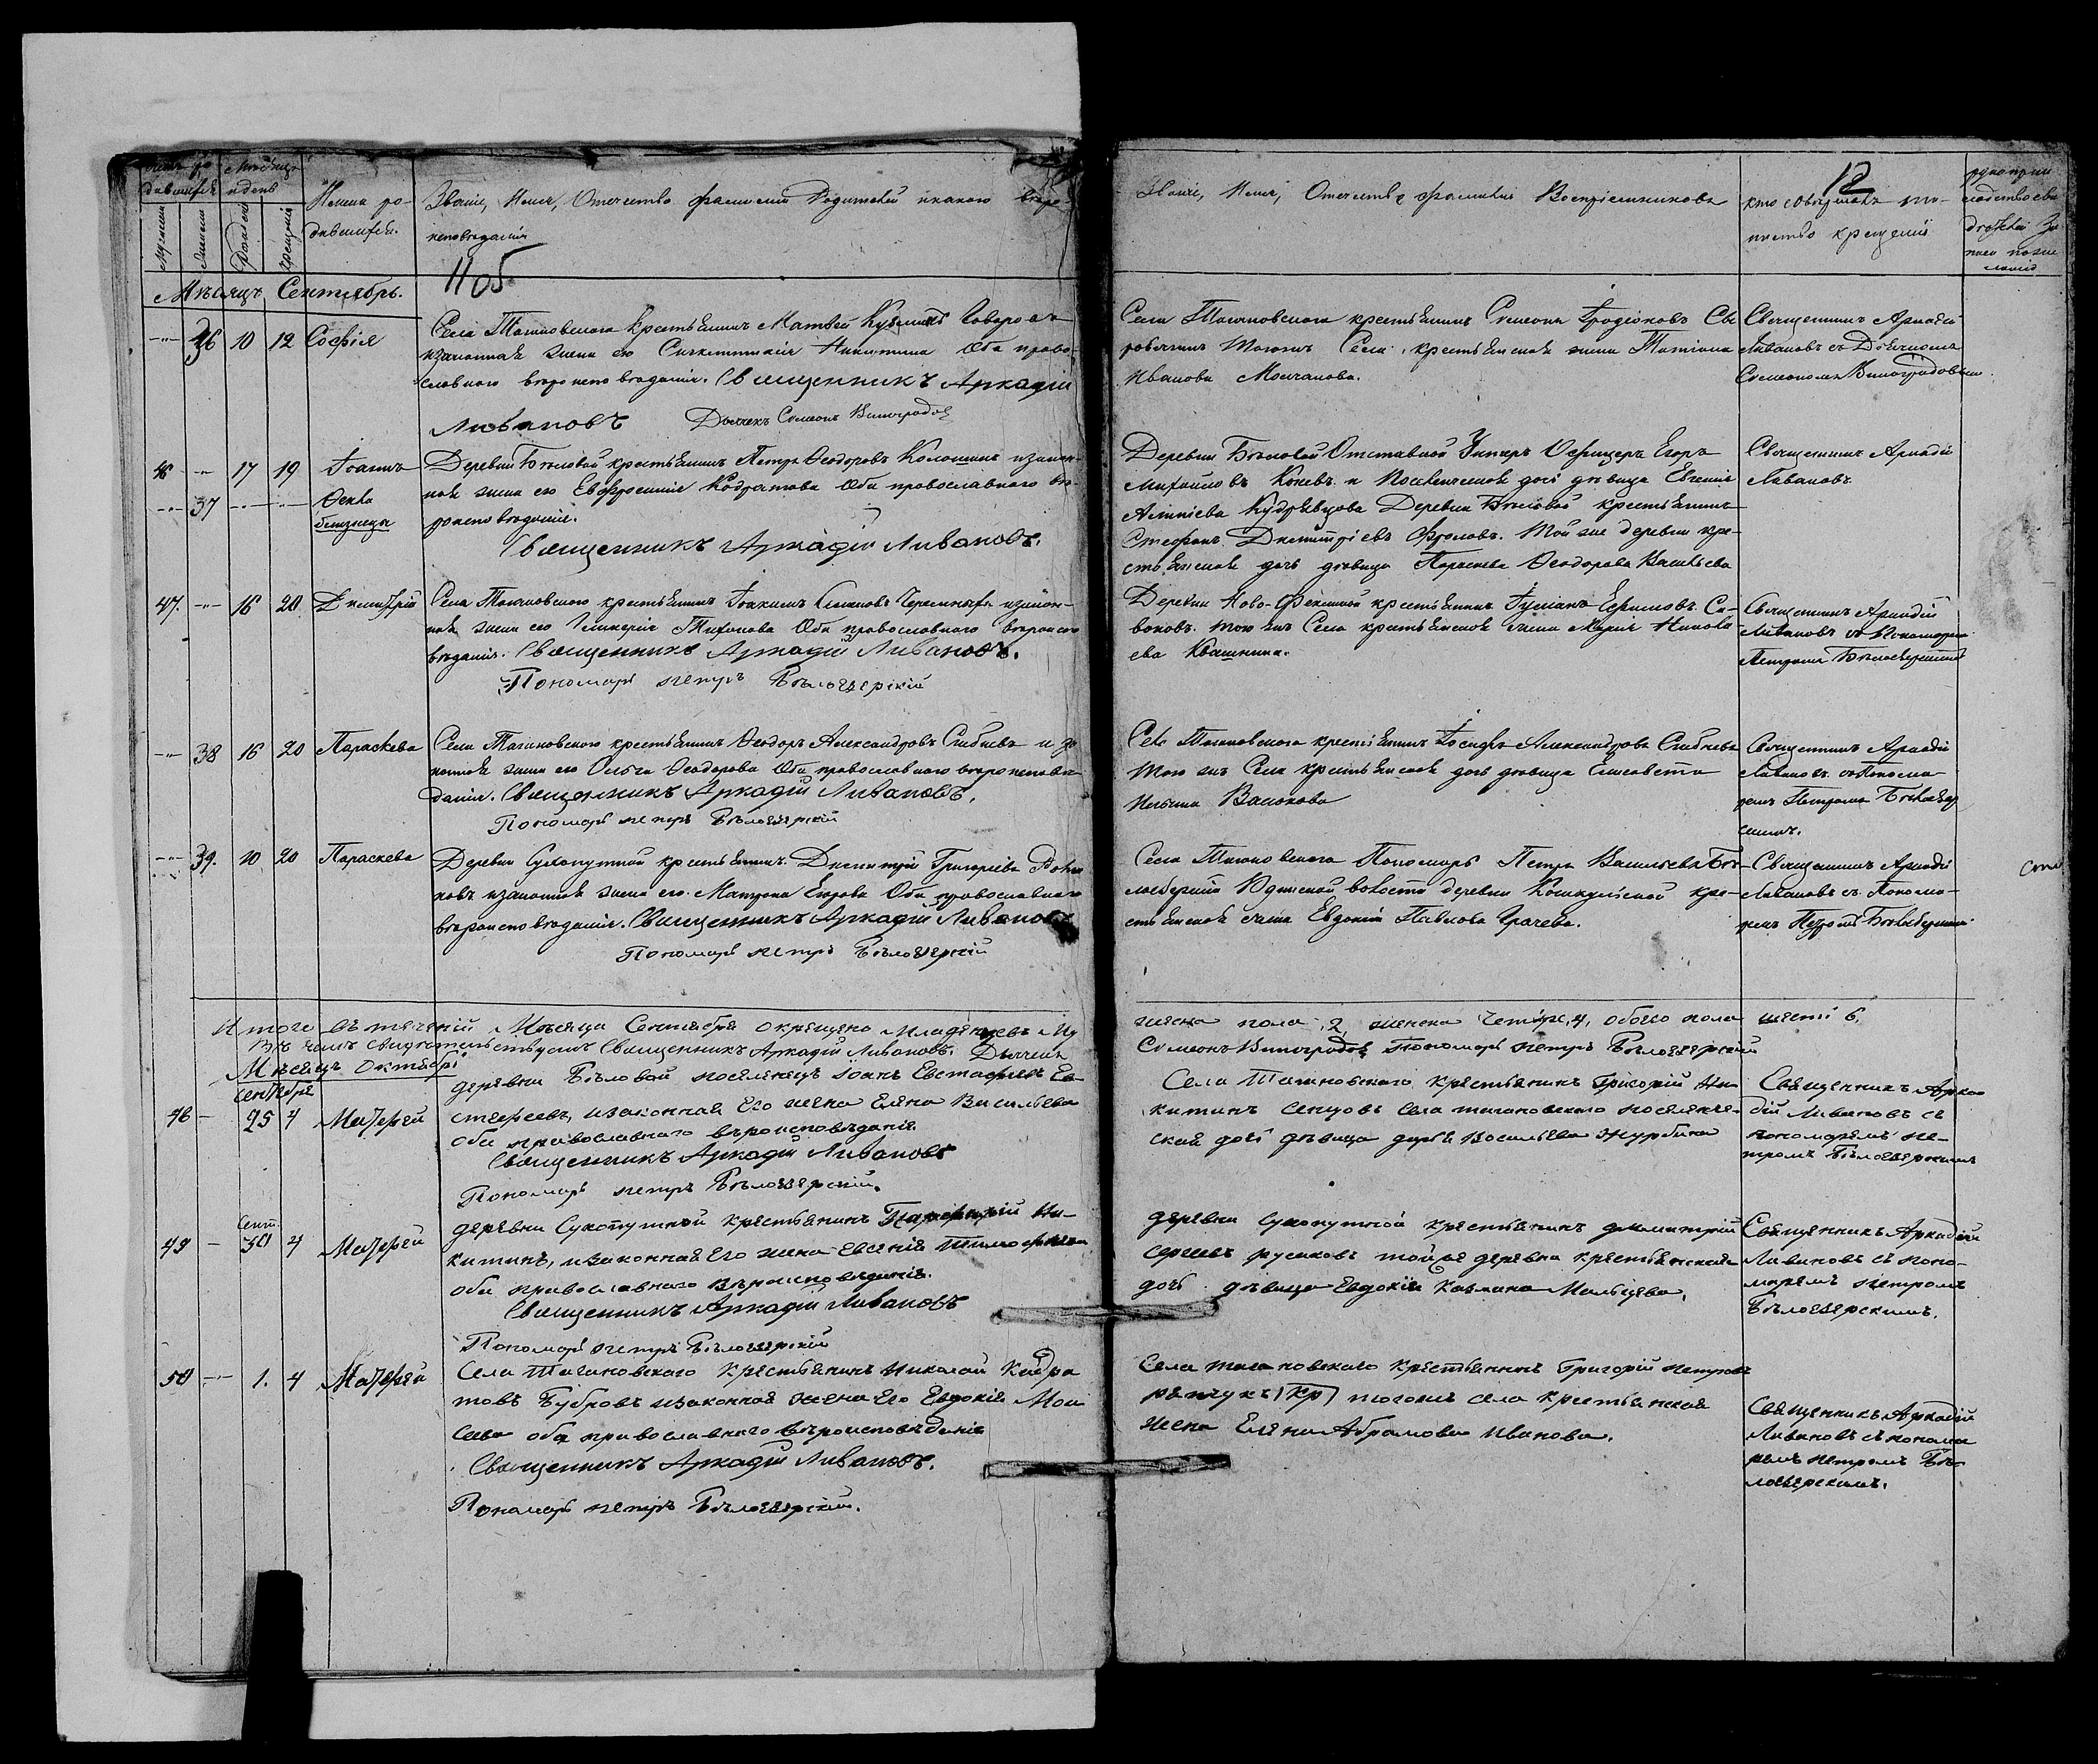 Счетъ ро-
дившихся
Мѣсяцъ
и день
Мужеска
Женска
Рожденія
Крещенія
Имена ро-
дившихся.
Званіе, Имя, Отечество фамилія Родителей и какого вѣро-
исповѣданія
1105
Званіе, Имя, Отечество фамилія Воспріемниковъ
12
кто совершалъ та-
инство крещенія
рукоприк
ладство сви
дѣтелей за
писи по же
ланію
Мѣсяцъ Сентябрь.
36 10 12 Софія
Села Тагановского крестьянинъ Матвѣй Кузминъ
изаконная жена его Синклитикія Никитина Оба право-
славного вѣроисповѣданія. Священникъ Аркадій
Ливановъ Дьячекъ Симеонъ Виноградов
Села Тагановского крестьянинъ Симеонъ Иродіоновъ
тогожъ Села крестьянская жена Татіана
Иванова Молчанова.
Священникъ Аркадій
Ливановъ съ Дьячкомъ
Симеономъ Виноградовым
46 17 19 Іоаннъ
37 Ѳекла
близнецы
Деревни Бѣловой крестьянинъ Петръ Ѳеодоровъ Колошинъ изакон-
ная жена его Евфросинія Кодратова Оба православного вѣ-
роисповѣданія.
Священникъ Аркадій Ливановъ.
Деревни Бѣловой Отставной Унтеръ Офицеръ Егоръ
Михайловъ Коневъ и дочь дѣвица Евгенія
Кудрявцова Деревни Бѣловой крестьянинъ
Стефанъ Димитріевъ Фроловъ. Той же деревни кре-
стьянская дочь дѣвица Параскева Ѳеодорова Васильева
Священникъ Аркадій
Ливановъ.
47. 16 20 Димитрій
Села Тагановского крестьянинъ Іоакимъ изакон-
ная жена его Гликерія Тихонова Оба православного вѣроиспо
вѣданія. Священникъ Аркадій Ливановъ.
Пономарь петръ Бѣлозерскій
Деревни Ново- крестьянинъ Іуліанъ Ефимовъ Са-
воковъ. того жъ Села крестьянская жена Марія Никола-
ева Квашнина.
Священникъ Аркадій
Ливановъ съ Пономаремъ
Петромъ Бѣлозерскимъ
38 16 20 Параскева
Села Тагановского крестьянинъ Ѳеодоръ Александровъ Слабневъ и за
конная жена его Ольга Ѳеодорова Оба православного вѣроисповѣ
данія. Священникъ Аркадій Ливановъ,
Пономарь петръ Бѣлозерскій
Села Тагановского крестьянинъ Іосифъ Александровъ Слабневъ
того жъ Села крестьянская дочь дѣвица Елисавета
Ильина Васюкова
Священникъ Аркадій
Ливановъ съ Понома-
ремъ Петромъ Бѣлозер
скимъ.
39. 10 20 Параскева
Деревни Сухопутной крестьянинъ Димитрій Григорьевъ
новъ изаконная жена его Матрона Егорова Оба православного
вѣроисповѣданія. Священникъ Аркадій Ливановъ
Пономарь петръ Бѣлозерскій
Села Тагановского Пономарь Петръ Васильевъ Бѣ-
лозерскій волости деревни кре-
стьянская жена Евдокія Павлова Грачева.
Священникъ Аркадій
Ливановъ съ Понома-
ремъ Петромъ Бѣлозерскимъ
Итого въ теченіи Мѣсяца Сентября окрещено Младенцевъ Му
жеска пола, 2, женска четыре, 4, обоего пола шесть 6.
Въ чемъ свидѣтельствуемъ Священникъ Аркадій Ливановъ. Дьячекъ
Симеонъ Виноградов Пономарь петръ Бѣлозерскій
Мѣсяцъ Октябрь
сентября
48 25 4 Матфей
деревни Бѣловой поселянецъ Іоанъ Евстафіевъ Ев
стафьевъ, изаконная его жена Елена Васильева
оба православнаго вѣроисповѣданія
Священникъ Аркадій Ливановъ
Пономарь петръ Бѣлозерскій.
Села Тагановскаго крестьянинъ Григорій Ни
китинъ Сенцовъ села тагановскаго поселянче-
ская дочь дѣвица дарья Васильева Журбина
Священникъ Арка
дій Ливановъ съ
пономаремъ пе-
тромъ Бѣлозерскимъ
сент.
49 30 4 Матфей
деревни Сухопутной крестьянинъ Парфирій Ни-
китинъ, изаконная его жена Евгенія Тимофеева
оба православнаго вѣроисповѣданія.
Священникъ Аркадій Ливановъ
Пономарь петръ Бѣлозерскій
деревни Сухопутной крестьянинъ димитрій
Сергеевъ русиковъ тойже деревни крестьянская
дочь дѣвица Евдокія Мальцева.
Священникъ Аркадій
Ливановъ съ поно-
маремъ петромъ
Бѣлозерскимъ.
50 1. 4 Матфей
Села Тагановскаго крестьянинъ Николай Кандра
товъ Бубровъ изаконная жена его Евдокія Мои
сеева оба православнаго вѣроисповѣданія
Священникъ Аркадій Ливановъ.
Пономарь петръ Бѣлозерскій.
Села тагановскаго крестьянинъ Григорій петровъ
(кр) тогожъ села крестьянская
жена Елена Абрамова Иванова.
Священникъ Аркадій
Ливановъ съ понома
ремъ петромъ Бѣ-
лозерскимъ.